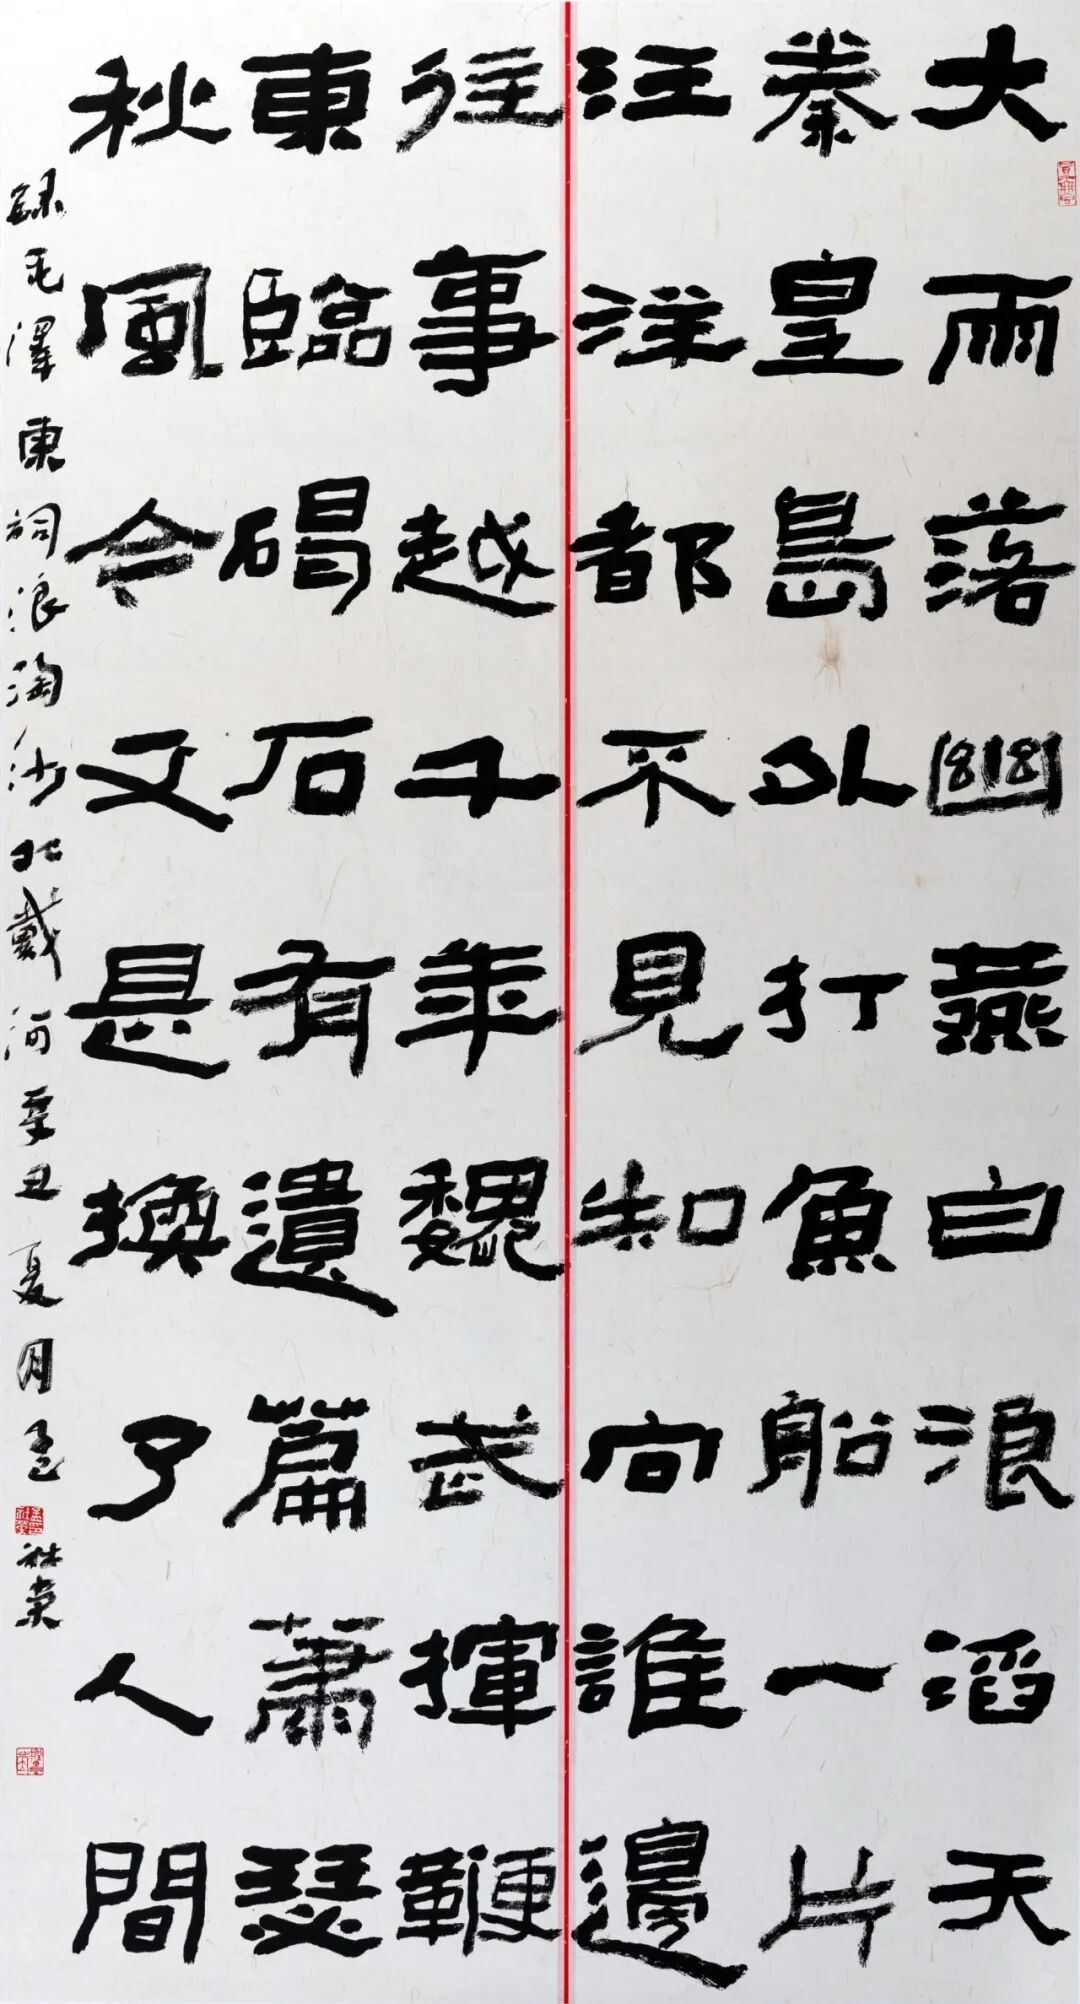 大雨落幽燕白浪滔天
秦皇島外打魚船一片
汪洋都不見知向誰邊
往事越千年魏武揮鞭
東臨碣石有遺篇蕭瑟
秋風今又是換了人間
錄毛澤東詞浪淘沙北戴河辛丑夏月